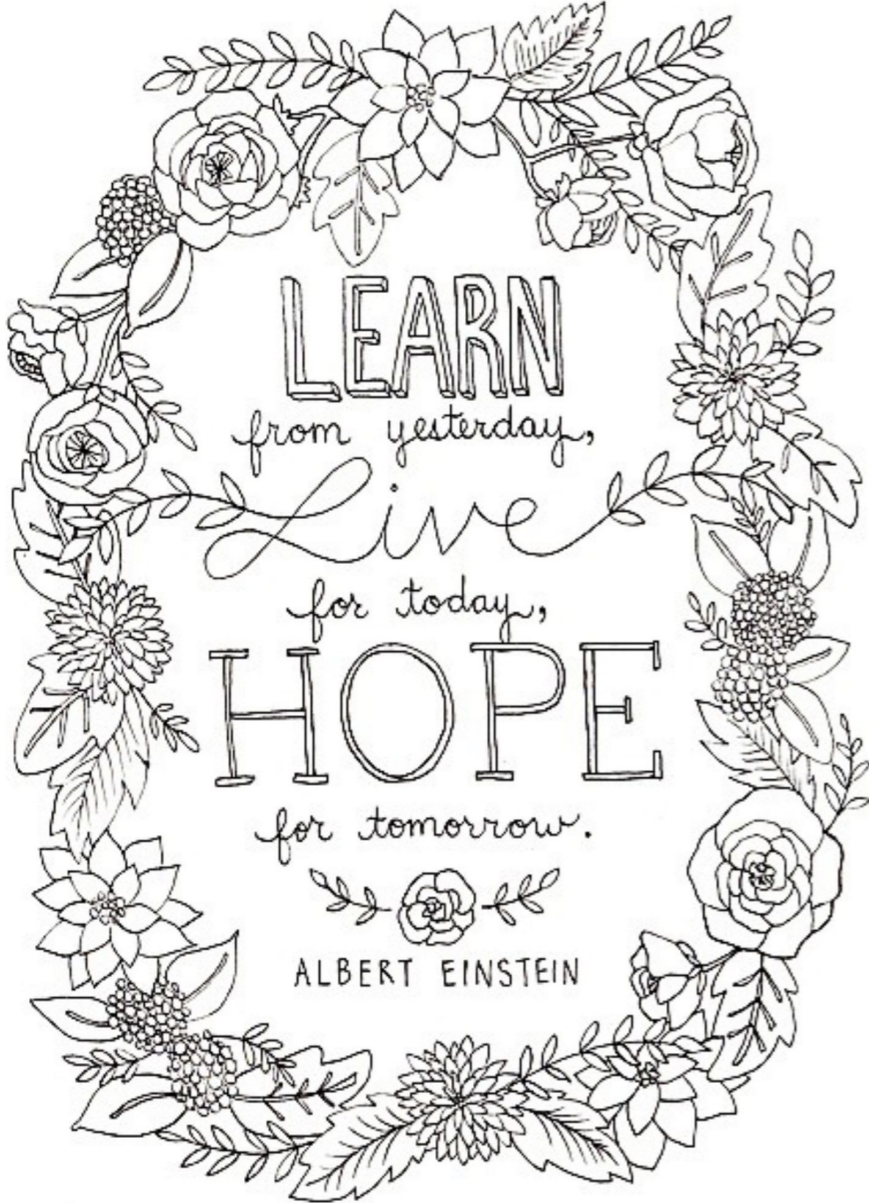 LEARN
from yesterday,
Live
for today,
HOPE
for tomorrow.
ALBERT EINSTEIN